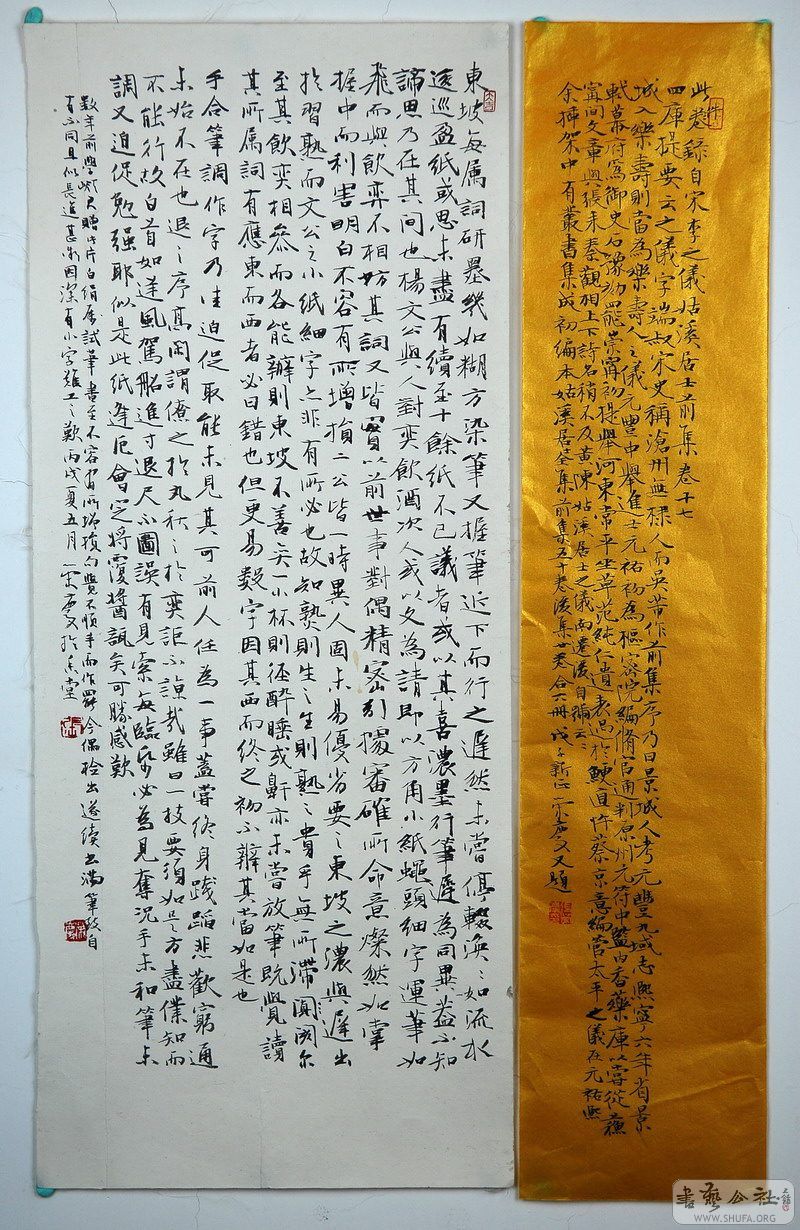 此卷錄自宋李之儀姑溪居士前集卷十七
四庫提要云之儀字端叔宋史稱滄州無棣人而吳芾作前集序乃曰景城人考元豐九域志熙寧六年省景
城入樂壽則當為樂壽人之儀元豐中舉進士元祐初為樞密院編脩官通判原州元符中監內香藥庫以嘗從蘇
軾幕府為御史石豫劾罷崇寧初提舉河東常平坐草范純仁遺表過於鯁直忤蔡京意編管太平之儀在元祐熙
寧間文章與張耒秦觀相上下詩名稍不及黃陳姑溪居士之儀南遷後自號云云
余插架中有叢書集成初編本姑溪居士集前集五十卷後集廿卷合六冊 又題
東坡每屬詞研墨幾如糊方染筆又握筆近下而行之遲然未嘗停輟渙渙如流水
逡巡盈紙或思未盡有續至十餘紙不已議者或以其喜濃墨行筆遲為同異蓋不知
諦思乃在其間也楊文公與人對奕飲酒次人或以文為請即以方角小紙蠅頭細字運筆如
飛而與飲奕不相妨其詞又皆實以前世事對偶精密引據審確所命意燦然如掌
握中而利害明白不容有所增損二公皆一時異人固未易優劣要之東坡之濃與遲出
於習熟而文公之小紙細字亦非有所必也故知熟則生生則熟之貴乎無所滯閡爾
至其飲奕相參而各能辦則東坡不善奕一小杯則徑醉睡或鼾亦未嘗放筆既覺讀
其所屬詞有應東而西者必曰錯也但更易數字因其西而終之初不辨其當如是也
手合筆調作字乃佳迫促取能未見其可前人任為一事蓋嘗終身踐蹈悲歡窮通
未始不在也退之序高閑謂僚之於丸秋之於奕詎不諒哉雖曰一技要須如是方盡僕知而
不能行故白首如逆風駕船進寸退尺不圖誤有見索每臨紙必為見奪況手未和筆未
調又迫促勉強耶似是此紙逢厄會定將覆醬瓿矣可勝感歎
數年前 贈此片白絹屬試筆書至不容有所增損句覺不順手而作罷今偶檢出遂續書滿筆致自
有不同且似長進甚 因深有小字難工之歎丙戌夏五月